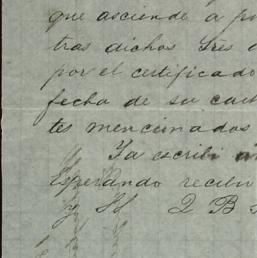 que asciende á po
tras dichos tres
por el certificado
fecha de su cur
tes mencionados
Ya escribi
Esperando recibi
Q B